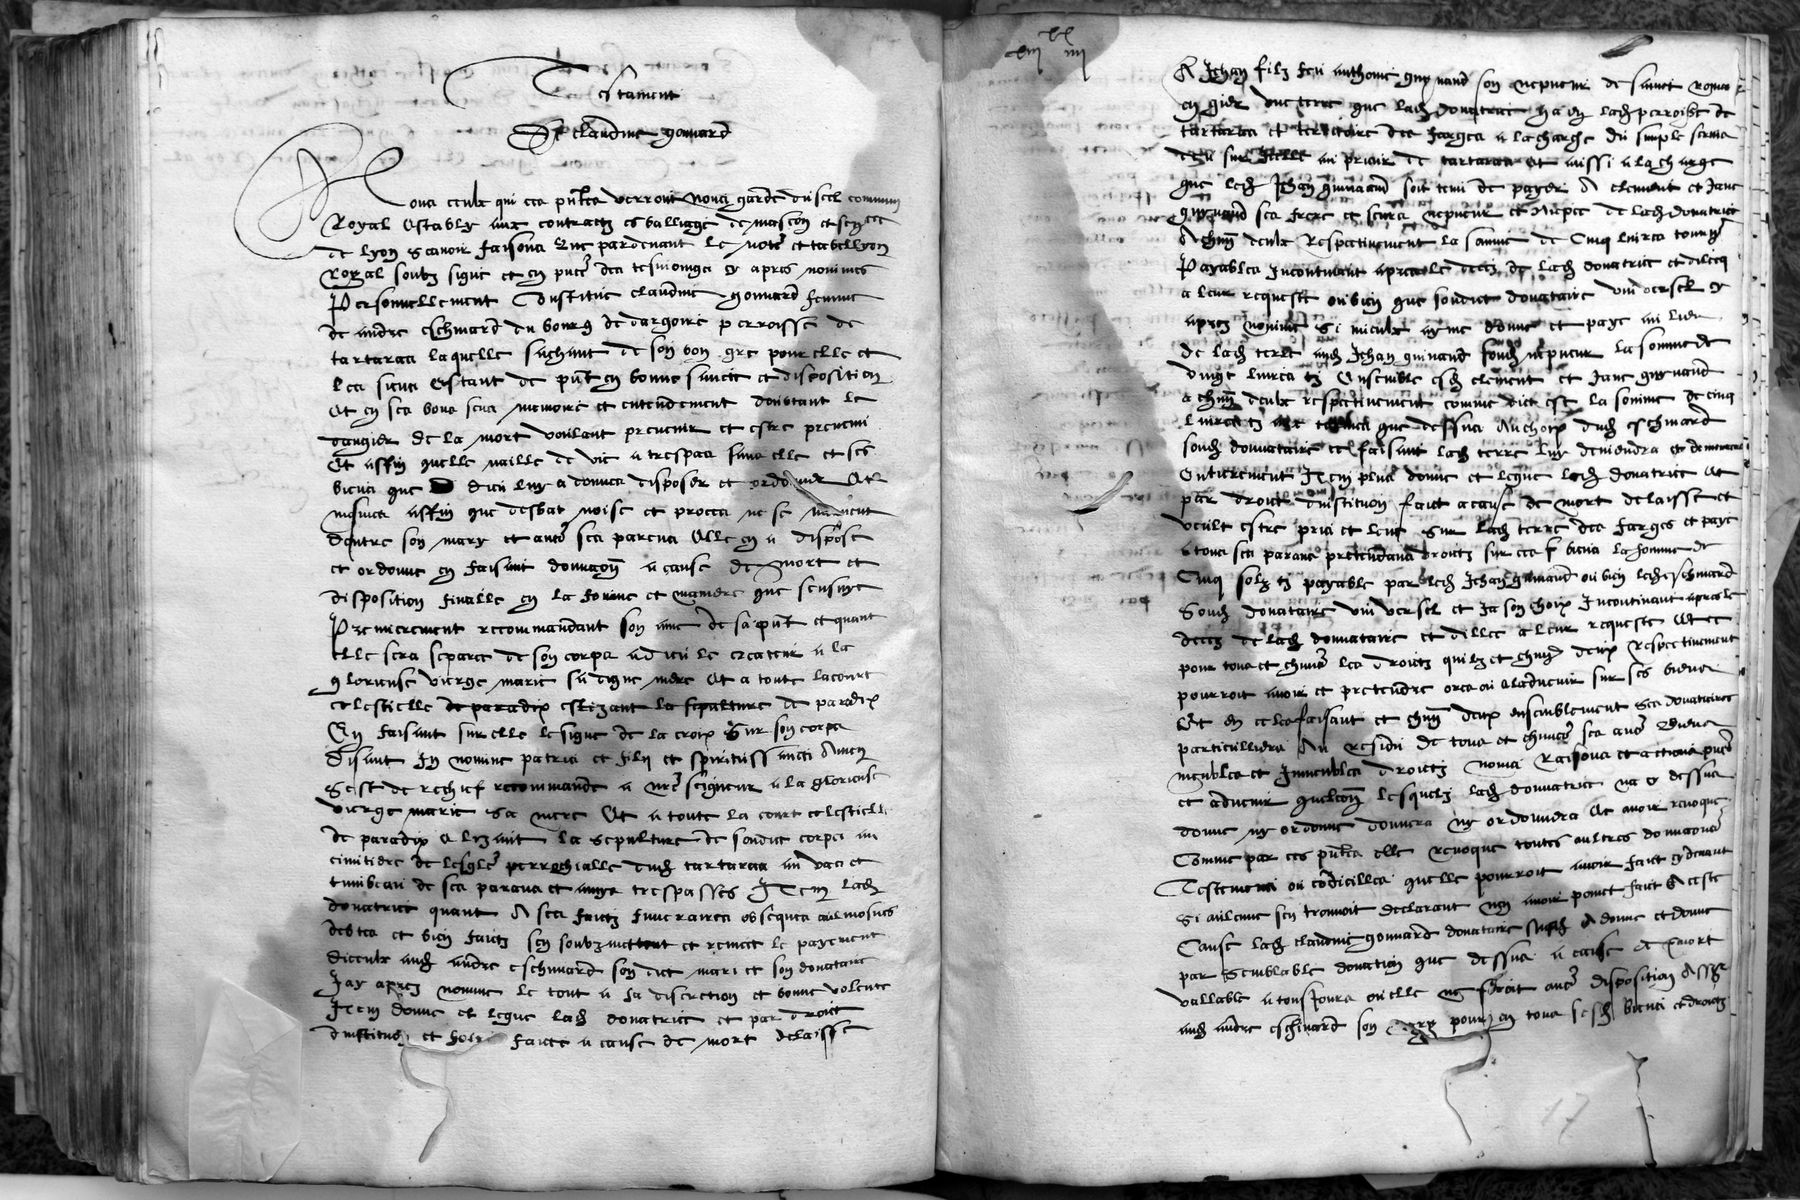 Testament
De claudine gonnard
A tous ceulx qui ces pntes verront Nous garde du scel commun
Royal estably aux contractz es balliage de mascon et senecee
de lyon Scavoir faisons Que pardevant le note et tabellyon
Royal soubz signe et en pnce des tesmoings cy apres nommes
Personnellement constitue claudine gonnard femme
de andre eschinard du bourg de dargoire perroisse de
tartaras laquelle suchant de son bon gre pour elle et
les siens estant de pnt en bonne sancte et disposition
et en ses bons sens memoire et entendement doubtant le
dangier de la mort voulant prevenir et estre prevenu
Et affin quelle naille de vie a trespas sans elle et ses
biens que dieu luy a donnes disposer et ordonner et
mesmes affin que desbat noise et proces ne se
dentre son mary et aultres ses parens elle en a dispose
et ordonne en faisant donnaon a cause de mort et
disposition finalle en la forme et maniere que sensuyt
Premierement recommandant son ame de sa pnt et quant
elle sera separee de son corps a dieu le createur a la
glorieuse vierge marie sa digne mere et a toute la court
celestielle de paradix eslizant la sepulture de paradix
En faisant sur elle le signe de la croix sur son corps
disant In nomine patris et filii et spiritus sancti Amen
Sest de rechief recommande a nre seigneur a la glorieuse
vierge marie sa mere et a toute la court celestielle
de paradix eslizant la sepulture de sondit corps au
cimitiere de lesglise perrochialle dud tartaras au vas et
tumbeau de ses parans et amys trespasses Item lad
donatrice quant a ses fraictz funeraires obseques aulmosnes
debtes et bien faictz sen soubzmettent et remect le payement
diceulx aud andre eschinard son dict mari et son donataire
Jay apres nomme le tout a sa discretion et bonne volente
Item donne et legue lad donatrice et par droit
dinstitution et faicte a cause de mort delaisse
A Jehan filz feu anthoine guynand son nepveur de sainct romain
en gier une terre que lad donatrice ha en lad perroisse de
tartaras et territoire des farges a la charge du simple servis
deu sur icelle au prieur de tartaras et aussi a la charge
que led Jehan guinand soit tenu de payer a clement et Jane
guynand ses frere et seurs nepveur et niepce de lad donatrice
a chun deulx respectivement la somme de cinq livres tournois
Payables Incontinant apres le decez de lad donatrice et dilecq
a leur requeste ou bien que sondict donataire universel cy
apres nomme si mieulx ayme donne et paye au lieu
de lad terre aud Jehan guinand sond nepveur la somme de
vingt livres tz ensemble esd clement et Jane guynand
a chun deulx respectivement comme dict est la somme de cinq
livres tz aux termes que dessus au choix dud eschinard
sond donnataire ce faisant lad terre luy deviendra et demourera
entierement Item plus donne et legue lad donatrice et
par droict dinstitution faict a cause de mort delaisse et
veult estre pris et leve sur lad terre des farges et paye
a tous ses parans pretendans droictz sur ses biens la somme de
cinq solz tz payable par led Jehan guinand ou bien led eschinard
sond donataire universel et a son choix Incontinant apres le
decez de lad donnataire et dillec a leur requeste et ce
pour tous et chuns les droictz quilz et chung deulx respectivement
pourroit avoir et pretendre ores ou a ladvenir sur ses biens
Et en ce les faisant et chun deulx ensemblement ses donataires
particulliers Au residu de tous et chuns ses aultres biens
meubles et Immeubles droictz noms raisons et actions pnts
et advenir quelconq lesquelz lad donnatrice na cy dessus
donne ny ordonne donnera ny ordonnera et avoir revoque
Comme par ces pntes elle revoque toutes aultres donnations
Testemens ou codicilles quelle pourroit avoir faict cy devant
si aulcune sen trouvoit declarant nen avoir point faict A ceste
Cause lad claudine gonnard donataire susd a donne et donne
par semblable donation que dessus a cause de mort
vallable a tousjours ou elle ne feroit aultre disposition Assr
aud andre eschinard son mary pour en tous sesd biens et droictz
17